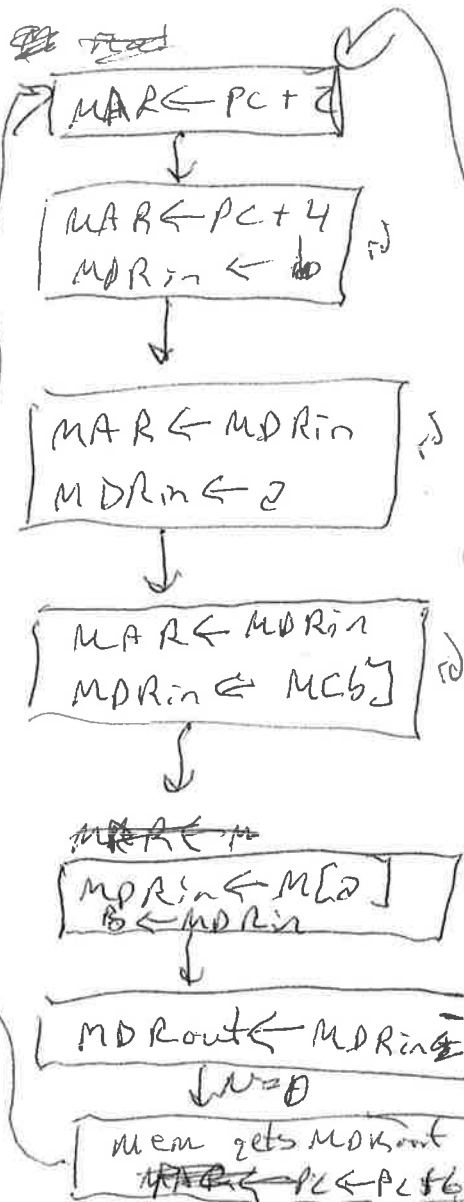 MAR ← PC + 2
MAR ← PC + 4
MDRin ← b
rd
MAR ← MDRin
MDRin ← a
rd
MAR ← MDRin
MDRin ← M[b]
rd
MDRin ← M[a]
B ← MDRin
MDRout ← MDRin
N=0
Mem gets MDRout
PC ← PC + 6